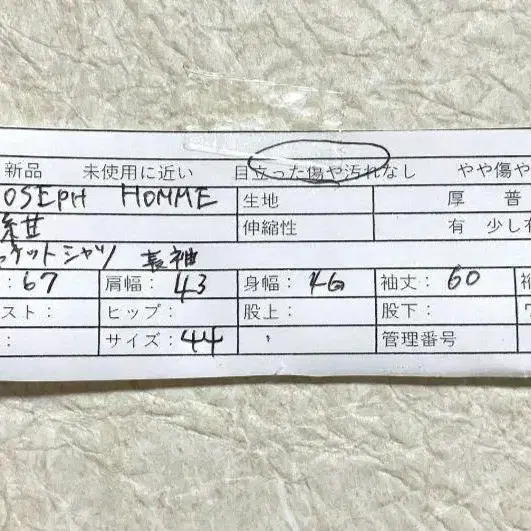 新品 未使用に近い 目立った傷や汚れなし やや傷や
OSEPH HOMME 生地 厚 普
紺 伸縮性 有 少し有
ケットシャツ 長袖
: 67 肩幅: 43 身幅: 46 袖丈: 60 裄
スト: ヒップ: 股上: 股下: ワ
: サイズ: 44 管理番号